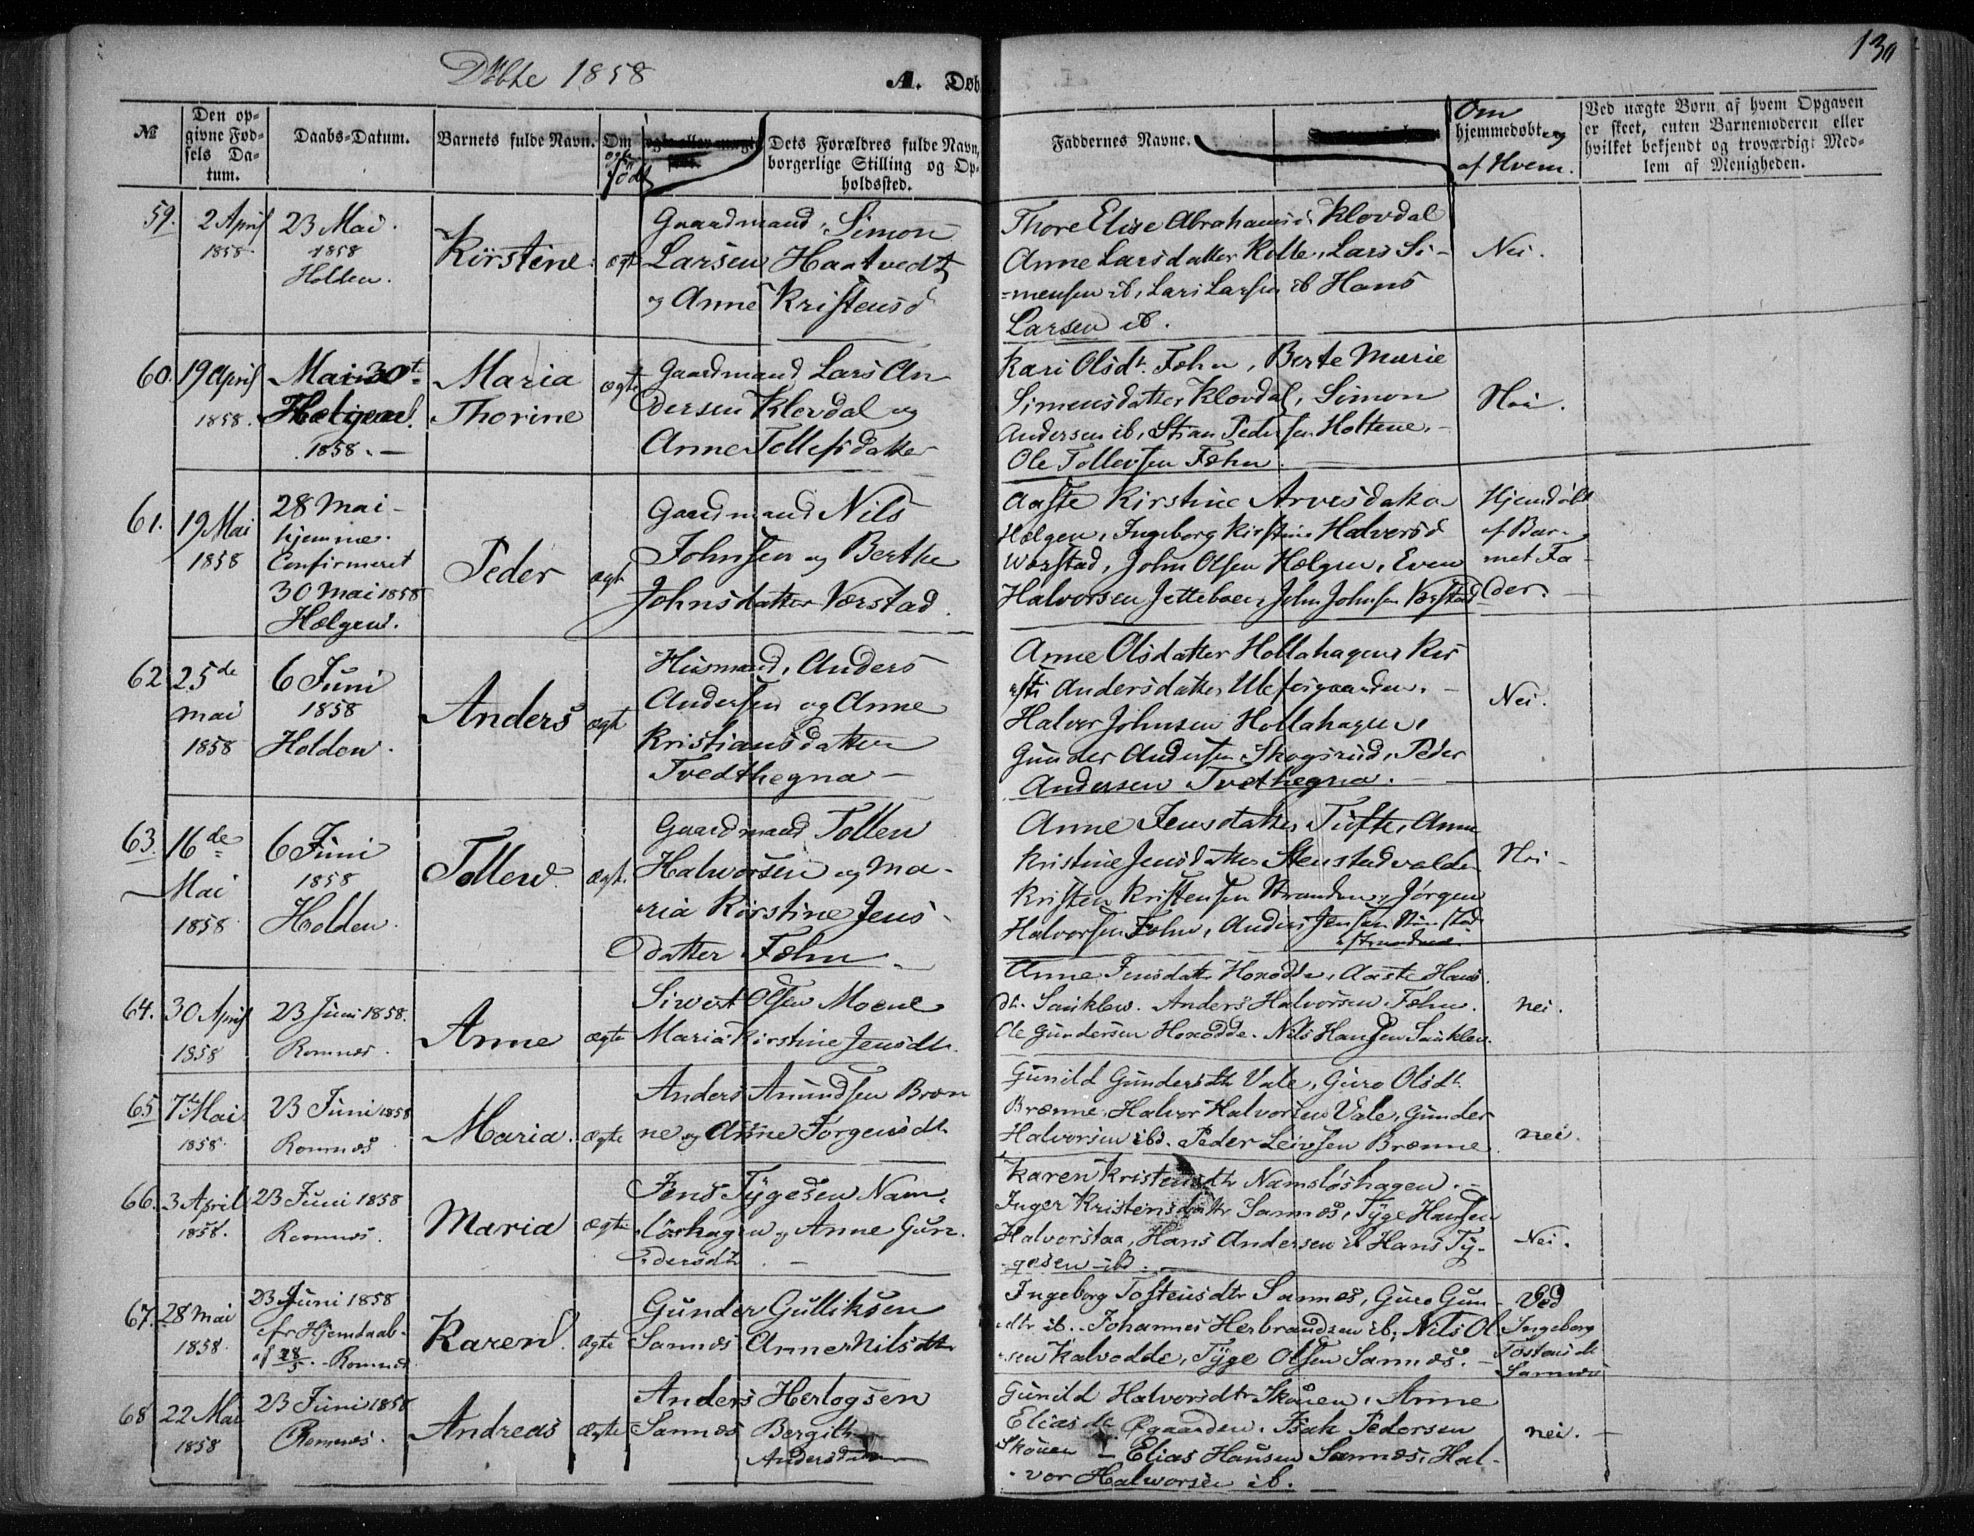 Døbte 1858
A. Døb
130
№
Den op-
givne Fød-
sels Da-
tum.
Daabs-Datum.
Barnets fulde Navn.
Om
ægte
født
Dets Forældres fulde Navn,
borgerlige Stilling og Op-
holdssted.
Faddernes Navne.
Om
hjemmedøbt og
af Hvem.
Ved uægte Børn af hvem Opgaven
er skeet, enten Barnemoderen eller
hvilket bekjendt og troværdigt Med-
lem af Menigheden.
59.
2 April
1858.
23 Mai.
1858
Holden.
Kirstine
ægt
Gaardmand, Simon
Larsen Haatvedt
og Anne Kristensd
Thore Elise Abrahamsd. Klovdal
Anne Larsdatter Kolte, Lars Si-
mensen ib, Lars Larsen ib Hans
Larsen ib.
Nei.
60.
19 April
1858.
Mai 30te
Hælgen.
1858. —
Maria
Thorine
ægte
Gaardmand Lars An
dersen Klovdal og
Anne Tollefsdatter
Kari Olsdt. Fæhn, Berte Marie
Simensdatter Klovdal, Simon
Andersen ib, Stian Pedersen Holtene, -
Ole Tollevsen Fæhn.
Nei.
61.
19 Mai
1858
28 Mai -
hjemme.
Confirmeret
30 Mai 1858
Hælgen.
Peder
ægt
Gaardmand Nils
Johnsen og Berthe
Johnsdatter Værstad.
Aaste Kirstine Arvesdatter
Hælgen, Ingeborg Kirstine Halversd
Værstad, John Olsen Hælgen, Even
Halvorsen Jetteboen, John Johnsen Værstad
Hjemdøbt
af Bar-
net Fa-
der.
62
25de
Mai
1858
6 Juni
1858
Holden.
Anders
ægt
Husmand, Anders
Andersen og Anne
Kristiansdatter
Tvedthegna -
Anne Olsdatter Hollahagen, Kir
sti Andersdatter Ulefosgaarden. -
Halvor Johnsen Hollahagen,
Gunder Andersen Skogsrud, Peder
Andersen Tvethegna. -
Nei.
63.
16de
Mai
1858
6 Juni
1858
Holden.
Tollew.
ægt.
Gaardmand Tollew
Halworsen og Ma-
ria Kirstine Jens-
datter Fæhn -
Anne Jensdatter Tufte, Anne
Kristine Jensdatter Stenstadvalde
Kristen Kristensen Stranden, Jørgen
Halvorsen Fæhn, Anders Jensen
Nei -
64.
30 April
1858
23 Juni 1858.
Romnæs.
Anne
ægte
Siwert Olsen Moene
Maria Kirstine Jensdt.
Anne Jensdatter Hoxodde, Aaste Hans
dt. Sanklew. Anders Halvorsen Fæhn.
Ole Gundersen Hoxodde. Nils Hansen Sanklew.
nei.
65
7de Mai
1858.
23 Juni 1858
Romnæs
Maria.
ægte
Anders Amundsen Bræn
ne og Anne Jørgensdt.
Gunild Gundersdtr Vale, Guro Olsdt.
Brænne. Halvor Halvorsen Vale, Gunder
Halvorsen ibd. Peder Leivsen Brænne.
nei.
66.
3 April
1858.
23 Juni 1858
Romnæs.
Maria
ægte
Jens Tygesen Nam-
løshagen og Anne Gun-
dersdtr. -
Karen Kristensdtr Namsløshagen. -
Inger Kristensdatter Sannæs, Tyge Hansen
Halvorstaa, Hans Andersen ib Hans Ty-
gesen ibd. -
Nei.
67.
28 Mai
1858.
23 Juni 1858
efr Hjemdaab
af 28/5. Romnæs
Karen.
ægte
Gunder Gulliksen
Sannæs Anne Nilsdtr
Ingeborg Tostensdtr Sannæs, Guro Gun-
dtr ib. Johannes Herbrandsen ib, Nils Ol
sen Kalvodde, Tyge Olsen Sannæs. -
Ved
Ingeborg
Tostensdt
Sannæs
68
22 Mai
1858
23 Juni 1858
Romnæs.
Andreas
ægte
Anders Hertogsen
Sannæs Bergith
Andersdatter
Gunild Halvorsdtr Skouen, Anne
Eliasdt. Øgaarden. Isak Pedersen
Skouen - Elias Hansen Sannæs, Hal-
vor Halworsen ib.
nei. -